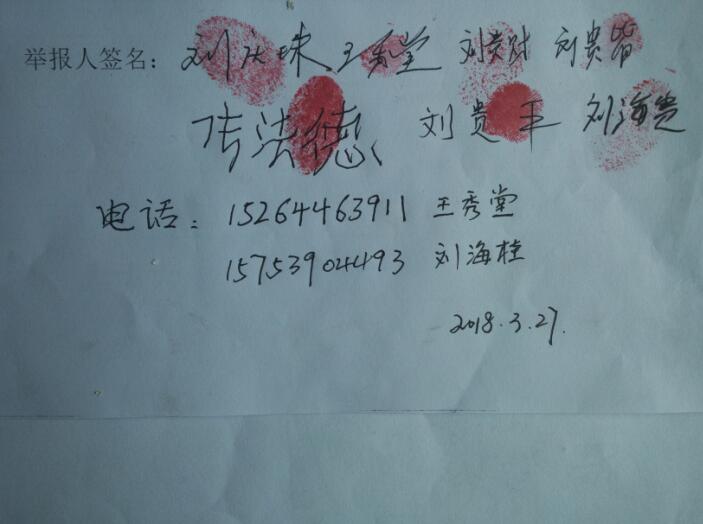 举报人签名：刘庆珠 王秀堂 刘贵财 刘贵省
法德 刘贵平 刘海贵
电话：15264463911 王秀堂
15753904493 刘海桂
2018.3.27.